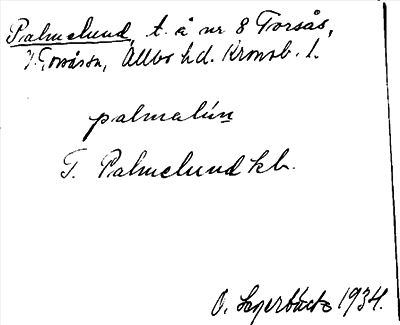 Palmelund, t. å nr 8 Torsås,
V. Torsåssn, Allbo hd. Kronob. l.
palmalún
T. Palmelund kb.
O. Lagerbäck 1934.